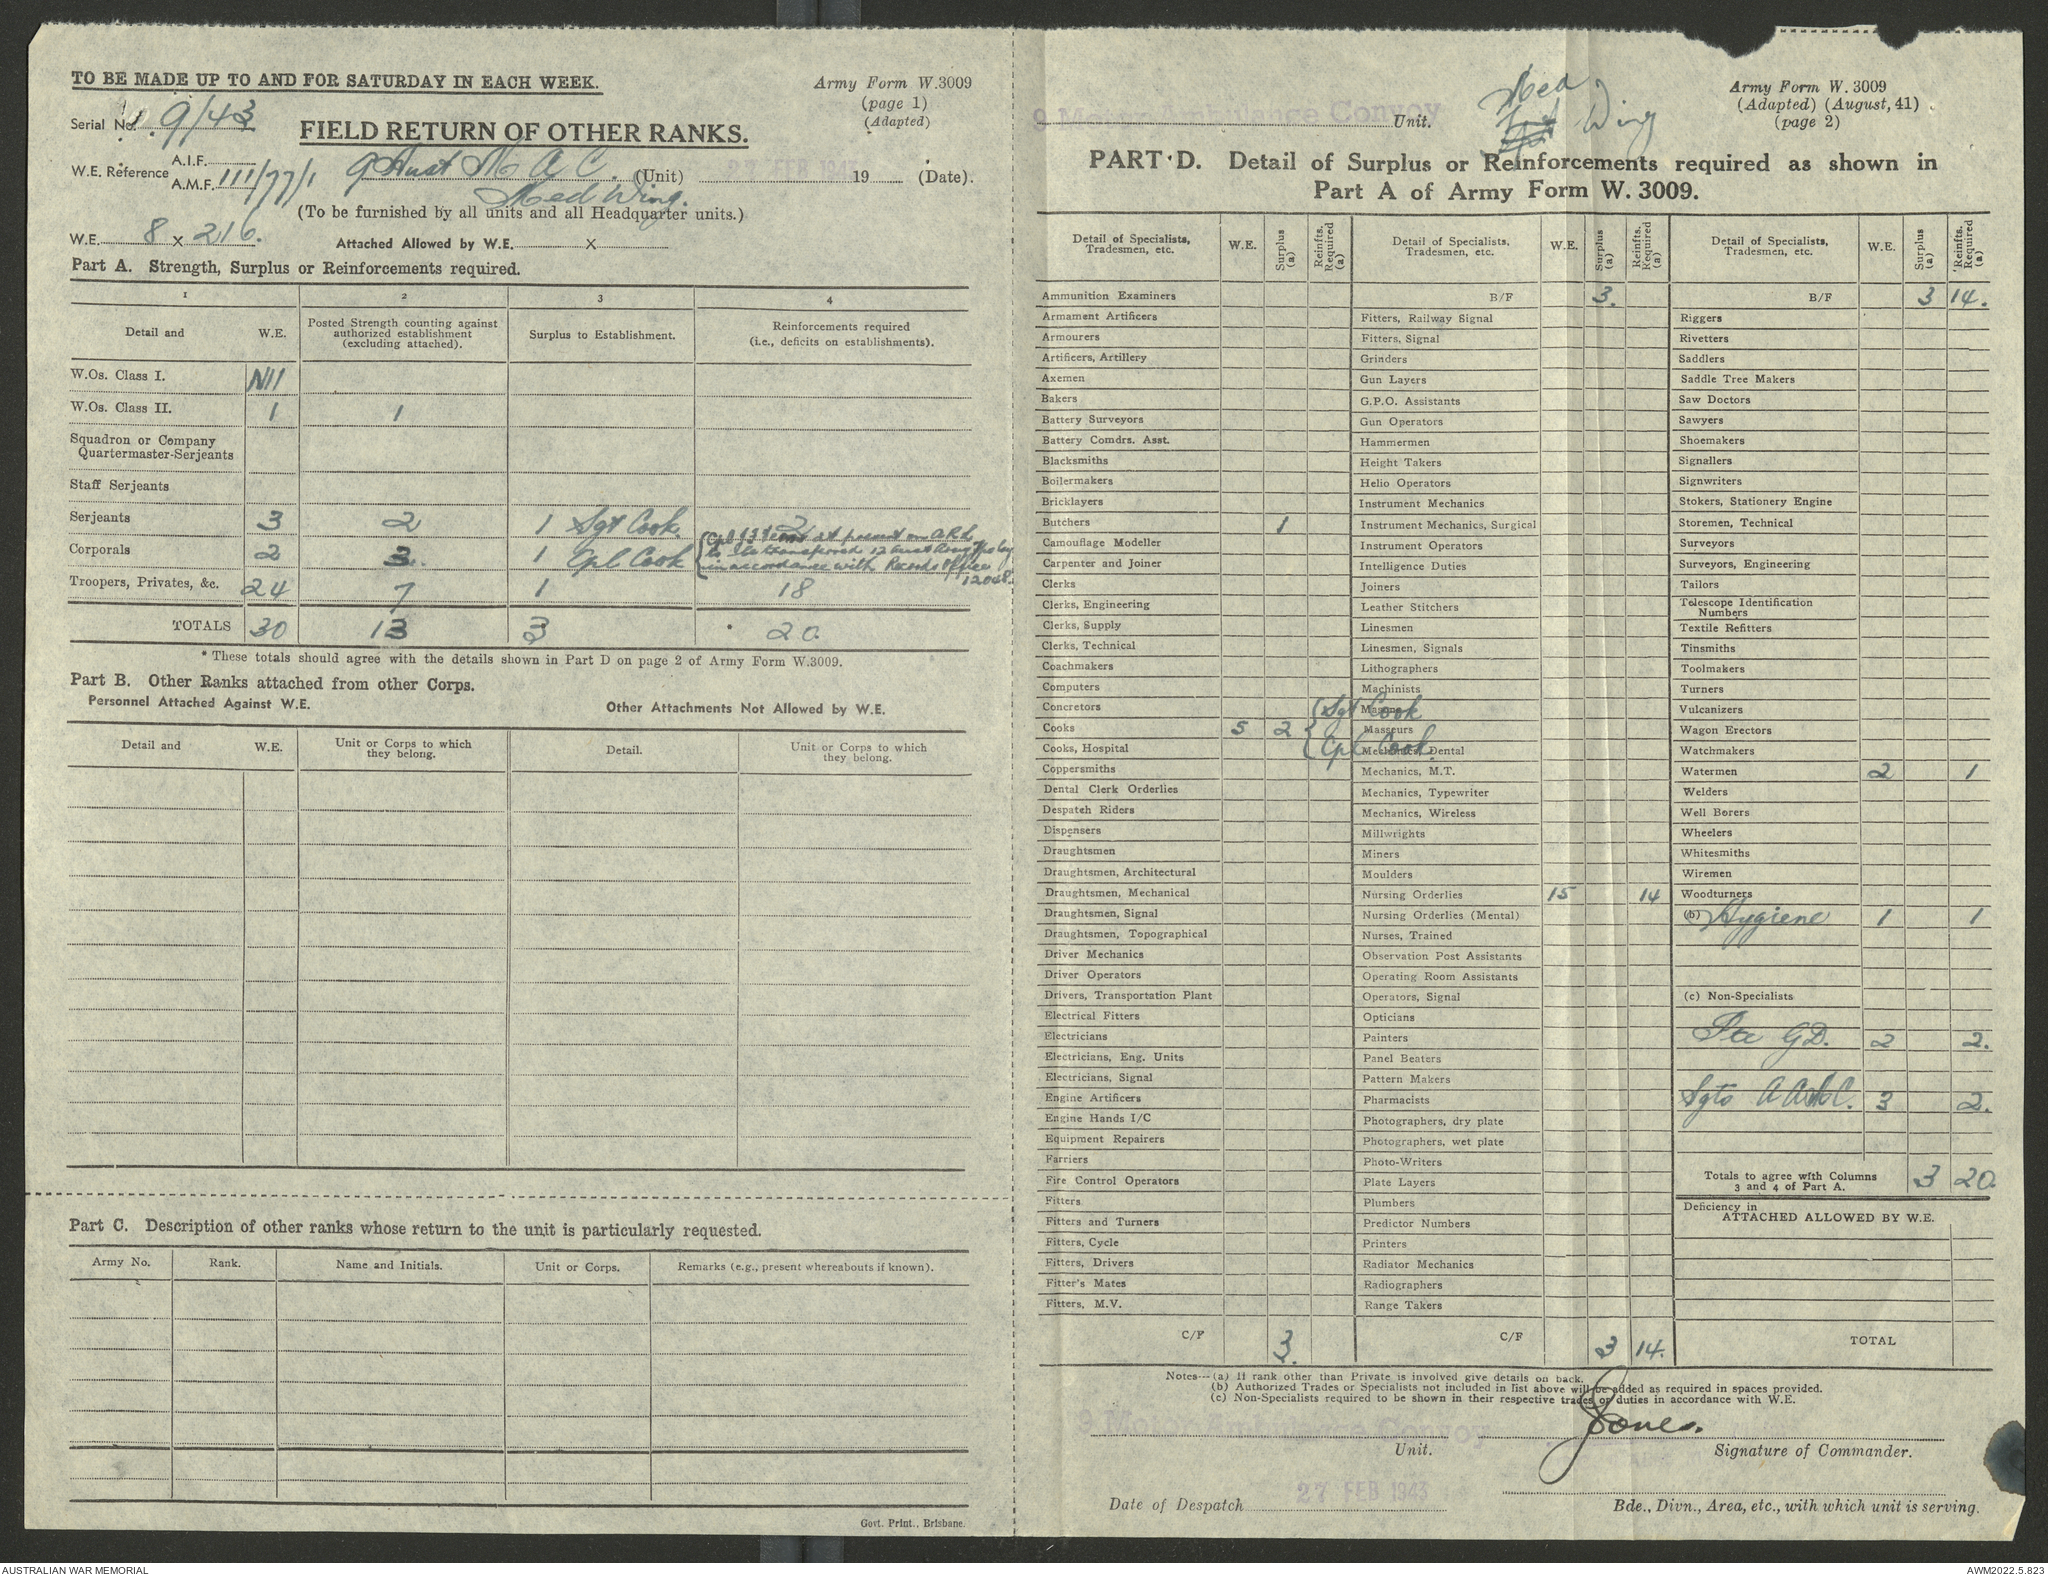 TO BE MADE UP TO AND FOR SATURDAY IN EACH WEEK.
Army Form W.3009
(page 1)
(Adapted)
Serial No. 9/43
FIELD RETURN OF OTHER RANKS.
W.E. Reference A.I.F.
A.M.F. III/77/1 9 Aust M A C. (Unit) 27 FEB 1943 19 (Date).
Med Wing.
(To be furnished by all units and all Headquarter units.)
W.E. 8 x 216. Attached Allowed by W.E. x
Part A. Strength, Surplus or Reinforcements required.
1 2 3 4
Detail and W.E. Posted Strength counting against authorized establishment (excluding attached). Surplus to Establishment. Reinforcements required (i.e., deficits on establishments).
W.Os. Class I. Nil
W.Os. Class II. 1 1
Squadron or Company Quartermaster-Serjeants
Staff Serjeants
Serjeants 3 2 1 Sgt Cook. 2
Corporals 2 3. 1 Cpl Cook
at present on
to be transferred 12 Aust
in accordance with Records Office
12048.
Troopers, Privates, &c. 24 7 1 18
TOTALS 30 13 3 * 20
* These totals should agree with the details shown in Part D on page 2 of Army Form W.3009.
Part B. Other Ranks attached from other Corps.
Personnel Attached Against W.E. Other Attachments Not Allowed by W.E.
Detail and W.E. Unit or Corps to which they belong. Detail. Unit or Corps to which they belong.
Part C. Description of other ranks whose return to the unit is particularly requested.
Army No. Rank. Name and Initials. Unit or Corps. Remarks (e.g., present whereabouts if known).
Govt. Print., Brisbane.
9 Motor Ambulance Convoy Unit.
Med Wing
Army Form W. 3009
(Adapted) (August, 41)
(page 2)
PART D. Detail of Surplus or Reinforcements required as shown in
Part A of Army Form W. 3009.
Detail of Specialists, Tradesmen, etc. W.E. Surplus (a) Reinfts. Required (a)
Ammunition Examiners
Armament Artificers
Armourers
Artificers, Artillery
Axemen
Bakers
Battery Surveyors
Battery Comdrs. Asst.
Blacksmiths
Boilermakers
Bricklayers
Butchers 1
Camouflage Modeller
Carpenter and Joiner
Clerks
Clerks, Engineering
Clerks, Supply
Clerks, Technical
Coachmakers
Computers
Concretors
Cooks 5 2 { Sgt Cook
Cpl Cook.
Cooks, Hospital
Coppersmiths
Dental Clerk Orderlies
Despatch Riders
Dispensers
Draughtsmen
Draughtsmen, Architectural
Draughtsmen, Mechanical
Draughtsmen, Signal
Draughtsmen, Topographical
Driver Mechanics
Driver Operators
Drivers, Transportation Plant
Electrical Fitters
Electricians
Electricians, Eng. Units
Electricians, Signal
Engine Artificers
Engine Hands I/C
Equipment Repairers
Farriers
Fire Control Operators
Fitters
Fitters and Turners
Fitters, Cycle
Fitters, Drivers
Fitter's Mates
Fitters, M.V.
C/F 3.
Detail of Specialists, Tradesmen, etc. W.E. Surplus (a) Reinfts. Required (a)
B/F 3.
Fitters, Railway Signal
Fitters, Signal
Grinders
Gun Layers
G.P.O. Assistants
Gun Operators
Hammermen
Height Takers
Helio Operators
Instrument Mechanics
Instrument Mechanics, Surgical
Instrument Operators
Intelligence Duties
Joiners
Leather Stitchers
Linesmen
Linesmen, Signals
Lithographers
Machinists
Masons
Masseurs
Mechanics, Dental
Mechanics, M.T.
Mechanics, Typewriter
Mechanics, Wireless
Millwrights
Miners
Moulders
Nursing Orderlies 15 14
Nursing Orderlies (Mental)
Nurses, Trained
Observation Post Assistants
Operating Room Assistants
Operators, Signal
Opticians
Painters
Panel Beaters
Pattern Makers
Pharmacists
Photographers, dry plate
Photographers, wet plate
Photo-Writers
Plate Layers
Plumbers
Predictor Numbers
Printers
Radiator Mechanics
Radiographers
Range Takers
C/F 3 14.
Detail of Specialists, Tradesmen, etc. W.E. Surplus (a) Reinfts. Required (a)
B/F 3 14.
Riggers
Rivetters
Saddlers
Saddle Tree Makers
Saw Doctors
Sawyers
Shoemakers
Signallers
Signwriters
Stokers, Stationery Engine
Storemen, Technical
Surveyors
Surveyors, Engineering
Tailors
Telescope Identification Numbers
Textile Refitters
Tinsmiths
Toolmakers
Turners
Vulcanizers
Wagon Erectors
Watchmakers
Watermen 2 1
Welders
Well Borers
Wheelers
Whitesmiths
Wiremen
Woodturners
(b) Hygiene 1 1
(c) Non-Specialists
Pte G.D. 2 2.
Sgts A.A.M.C. 3 2.
Totals to agree with Columns 3 and 4 of Part A. 3 20.
Deficiency in
ATTACHED ALLOWED BY W.E.
TOTAL
Notes—(a) If rank other than Private is involved give details on back.
(b) Authorized Trades or Specialists not included in list above will be added as required in spaces provided.
(c) Non-Specialists required to be shown in their respective trades or duties in accordance with W.E.
9 Motor Ambulance Convoy Jones.
Unit. Signature of Commander.
Date of Despatch 27 FEB 1943 Bde., Divn., Area, etc., with which unit is serving.
AUSTRALIAN WAR MEMORIAL
AWM2022.5.823